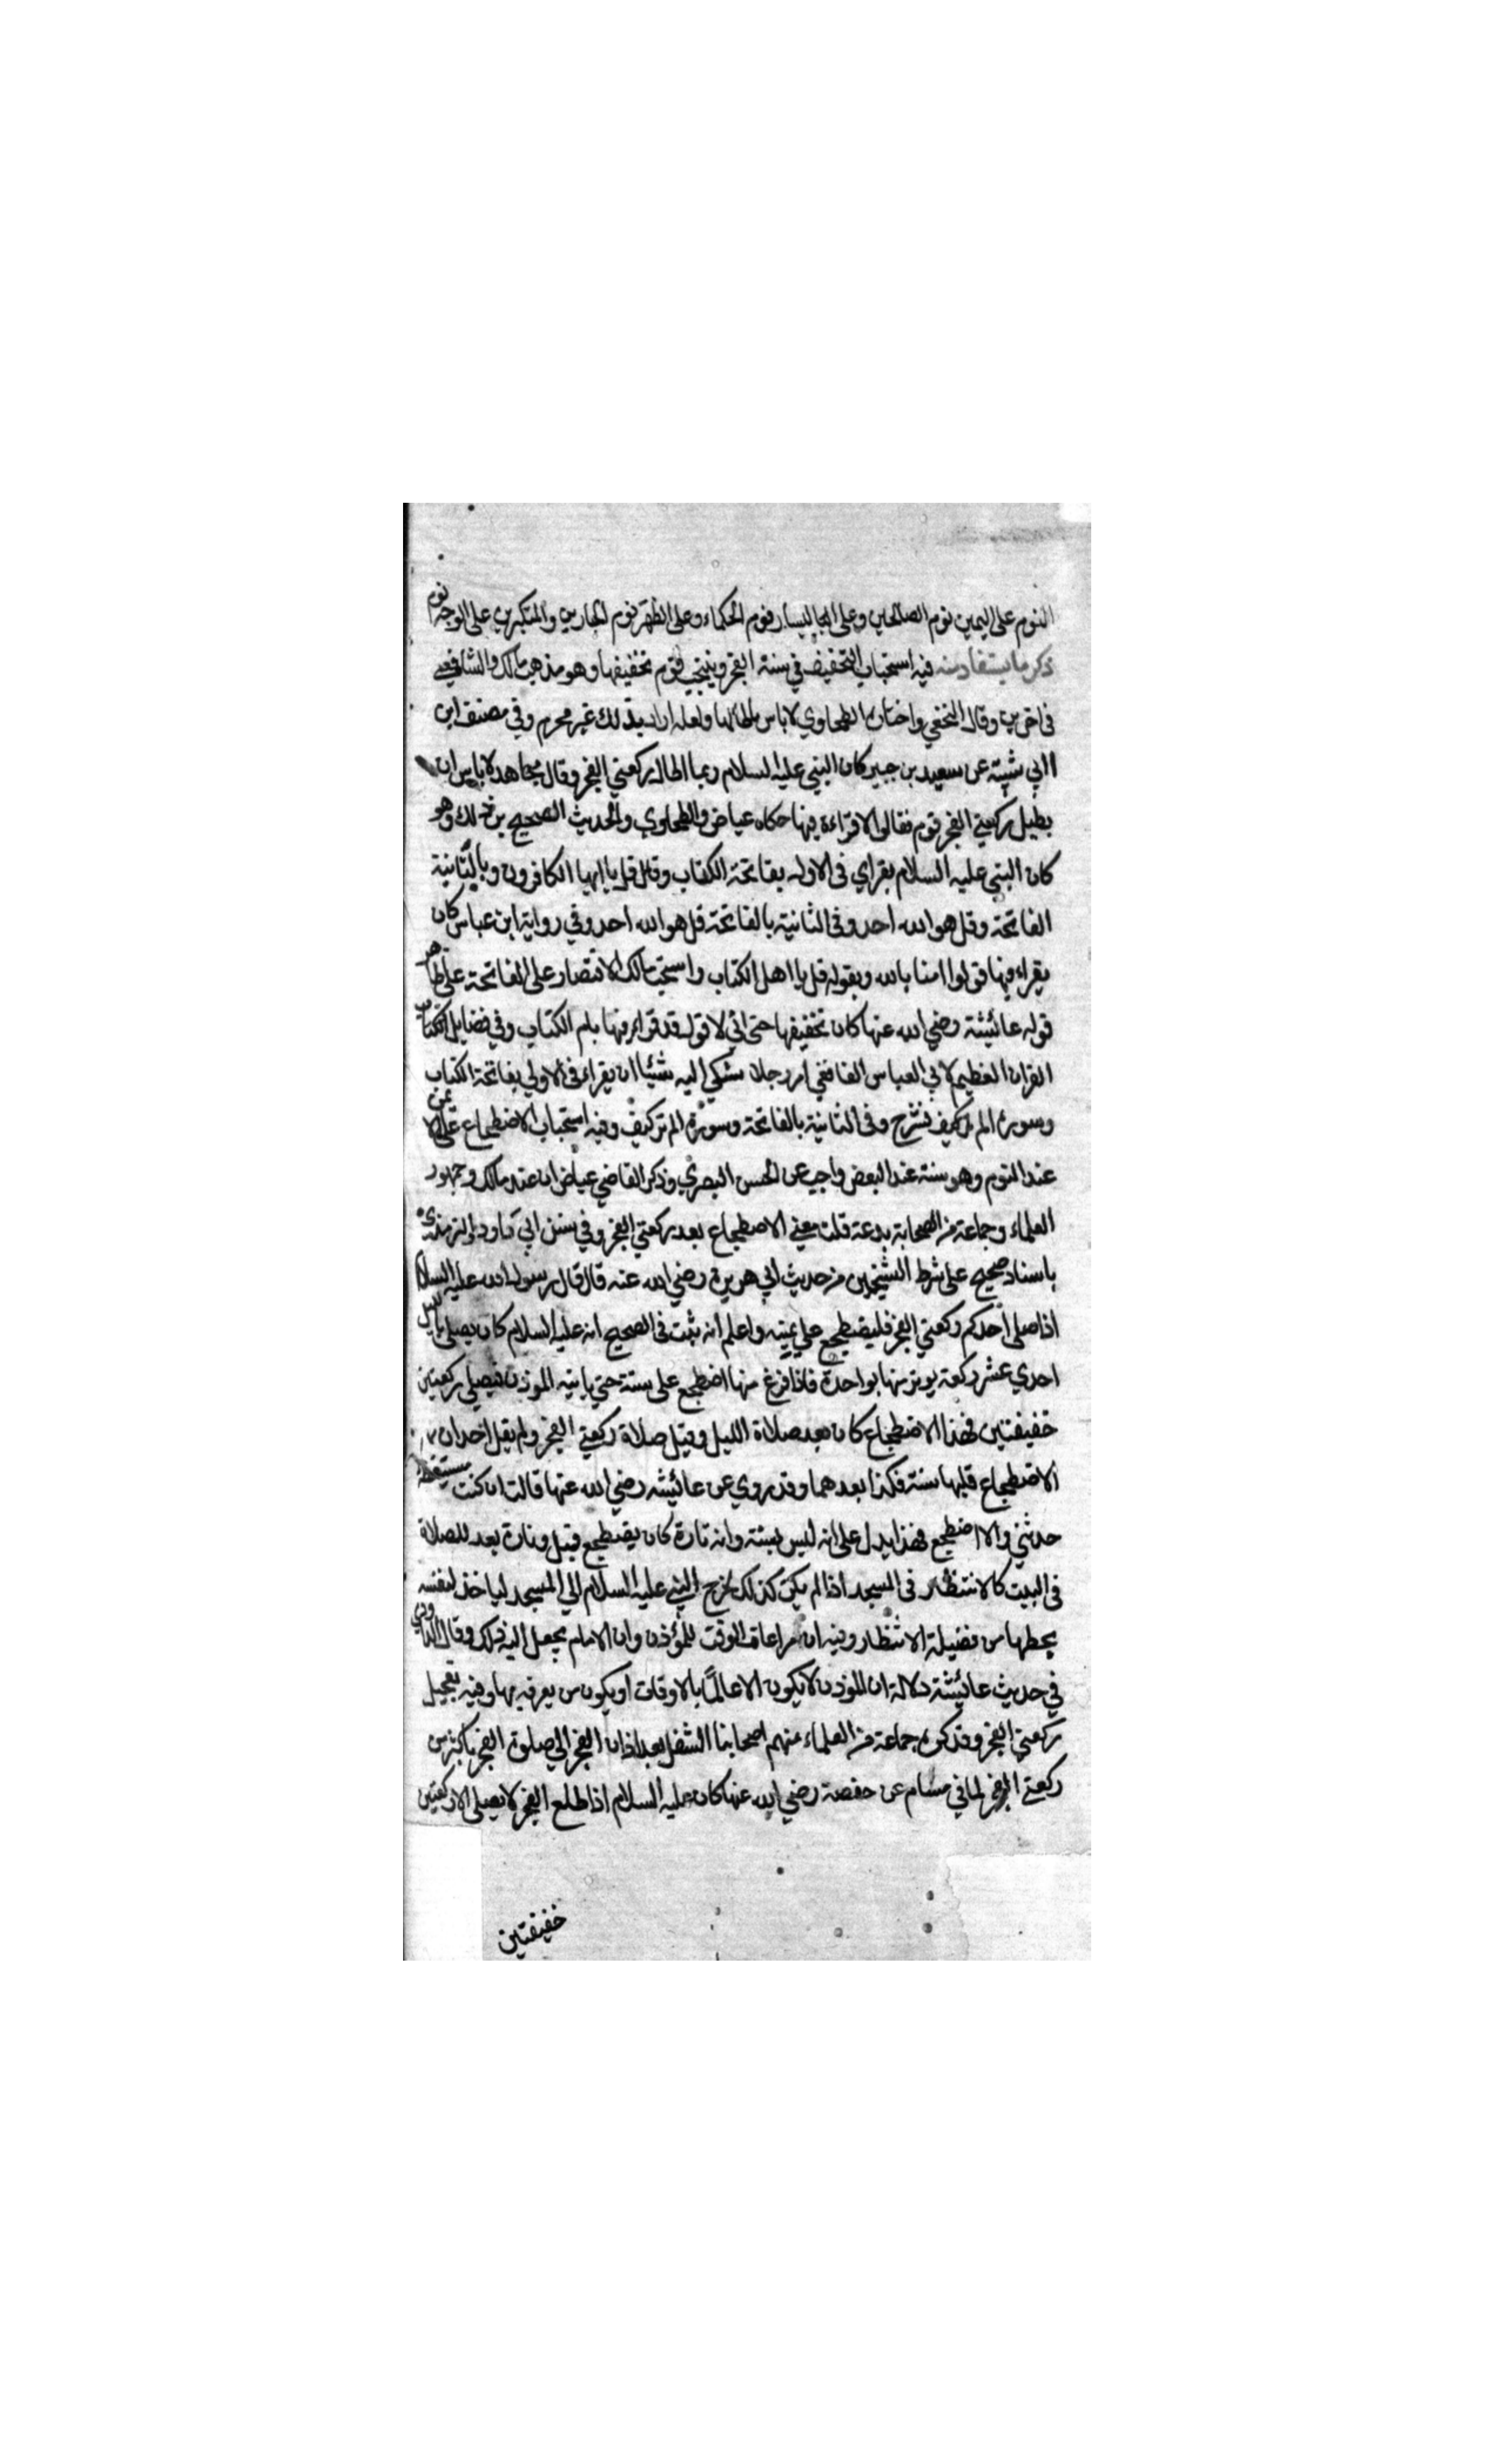 النوم على اليمين نوم الصالحين وعلى اليسار نوم الحكماء وعلى الظهر نوم الجبارين والمتكبرين على الوجه نوم
ذكر ما يستفاد منه فيه استحباب التخفيف في سنة الفجر قوم تخفيفها وهو مذهب مالك والشافعي
في اخرين وقال النخعي واختاره الطحاوي لا باس باطالتها ولعله اراد بذلك غير محرم وفي مصنف ابن
ابي شيبة عن سعيد بن جبير كان النبي عليه السلام ربما اطال ركعتي الفجر وقال مجاهد لا باس ان
يطيل ركعتي الفجر قوم فقالوا لا قراءة فيها حكاه عياض والطحاوي والحديث الصحيح يرد ذلك وهو
كان النبي عليه السلام يقراي في الاوله بفاتحة الكتاب وقل يا ايها الكافرون وبالثانية
الفاتحة وقل هو الله احد وفي الثانية بالفاتحة قل هو الله احد وفي رواية ابن عباس كان
يقراء فيها قولوا امنا بالله وبقوله قل يا اهل الكتاب واستحب مالك الاقتصار على الفاتحة على ظاهر
قوله عائشة رضي الله عنها كان تخفيفها حتى اني لا قول قد قراء فيها بام الكتاب وفي فضايل الكتاب
القران العظيم لابي العباس الغافقي امر رجلا شكي اليه شيئا ان يقراء في الاولي بفاتحة الكتاب
وسورة الم نشرح وفي الثانية بالفاتحة وسورة الم تركيف وفيه استحباب الاضطجاع على الايمن
عند النوم وهو سنة عند البعض واجب عن الحسن البصري وذكر القاضي عياض ان عند مالك وجمهور
العلماء وجماعة من الصحابة بدعة قلت معني الاضطجاع بعد ركعتي الفجر وفي سنن ابي داود والترمذي
باسناد صحيح على شرط الشيخين من حديث ابي هريرة رضي الله عنه قال قال رسول الله عليه السلام
اذا صلى احدكم ركعتي الفجر فليضطجع علي يمينه واعلم انه ثبت في الصحيح انه عليه السلام كان يصلي بالليل
احدي عشر ركعة يوتر منها بواحدة فاذا فرغ منها اضطجع على حتي ياتيه الموذن فيصلي ركعتين
خفيفتين فهذا الاضطجاع كان بعد صلاة الليل وقبل صلاة ركعتي الفجر ولم يقل احد ان
الاضطجاع قبلها سنة فكذا بعدهما وقد روي عن عائيشه رضي الله عنها قالت ان كنت مستيقظة
حدثني والا اضطجع فهذا يدل على انه ليس بسنة وانه تارة كان يضطجع قبل وتارة بعد للصلاة
في البيت كالانتظار في المسجد اذا لم يكن كذلك لخرج النبي عليه السلام الي المسجد لياخذ لنفسه
بحظها من فضيلة الانتظار وفيه ان مراعاة الوقت للمؤذن وان الامام يجعل اليه ذلك وقال الداودي
في حديث عائيشة دلالة ان الموذن لا يكون الا عالماً بالاوقات او يكون من يعرفه بها وفيه تعجيل
ركعتي الفجر وقد كره جماعة من العلماء منهم اصحابنا التنفل بعد اذان الفجر الي صلوة الفجر باكثر من
ركعتي الفجر لما في مسلم عن حفصة رضي الله عنها كان عليه السلام اذا طلع الفجر لا يصلي الا ركعتين
خفيفتين